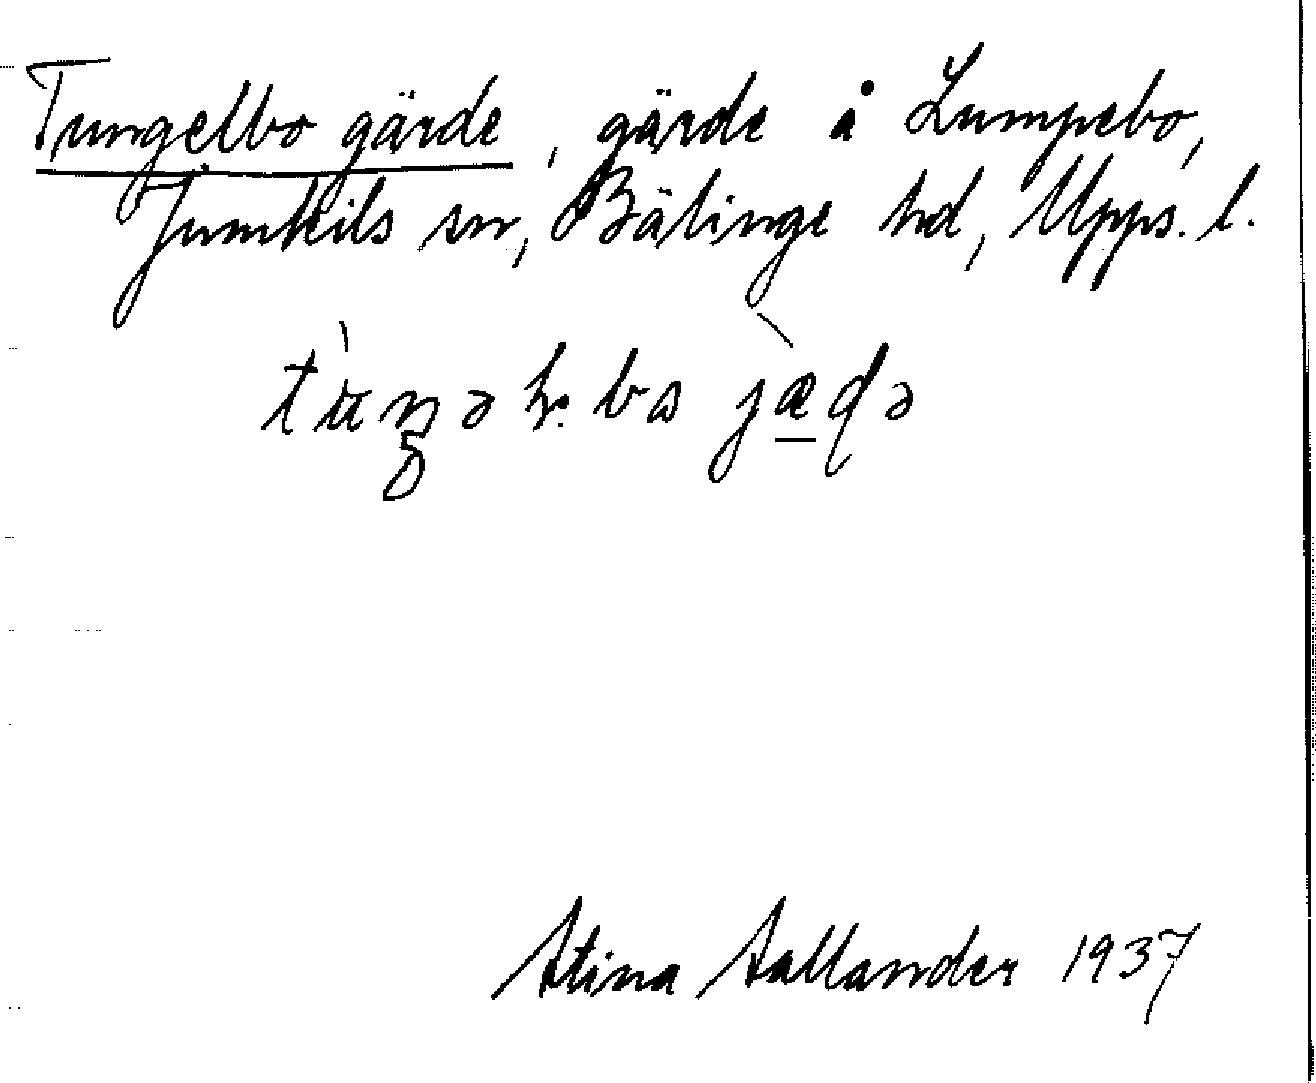 Tungelbo gärde, gärde å Lumpebo,
Jumkils sn, Bälinge hd, Upps. l.
Stina Sallander 1937